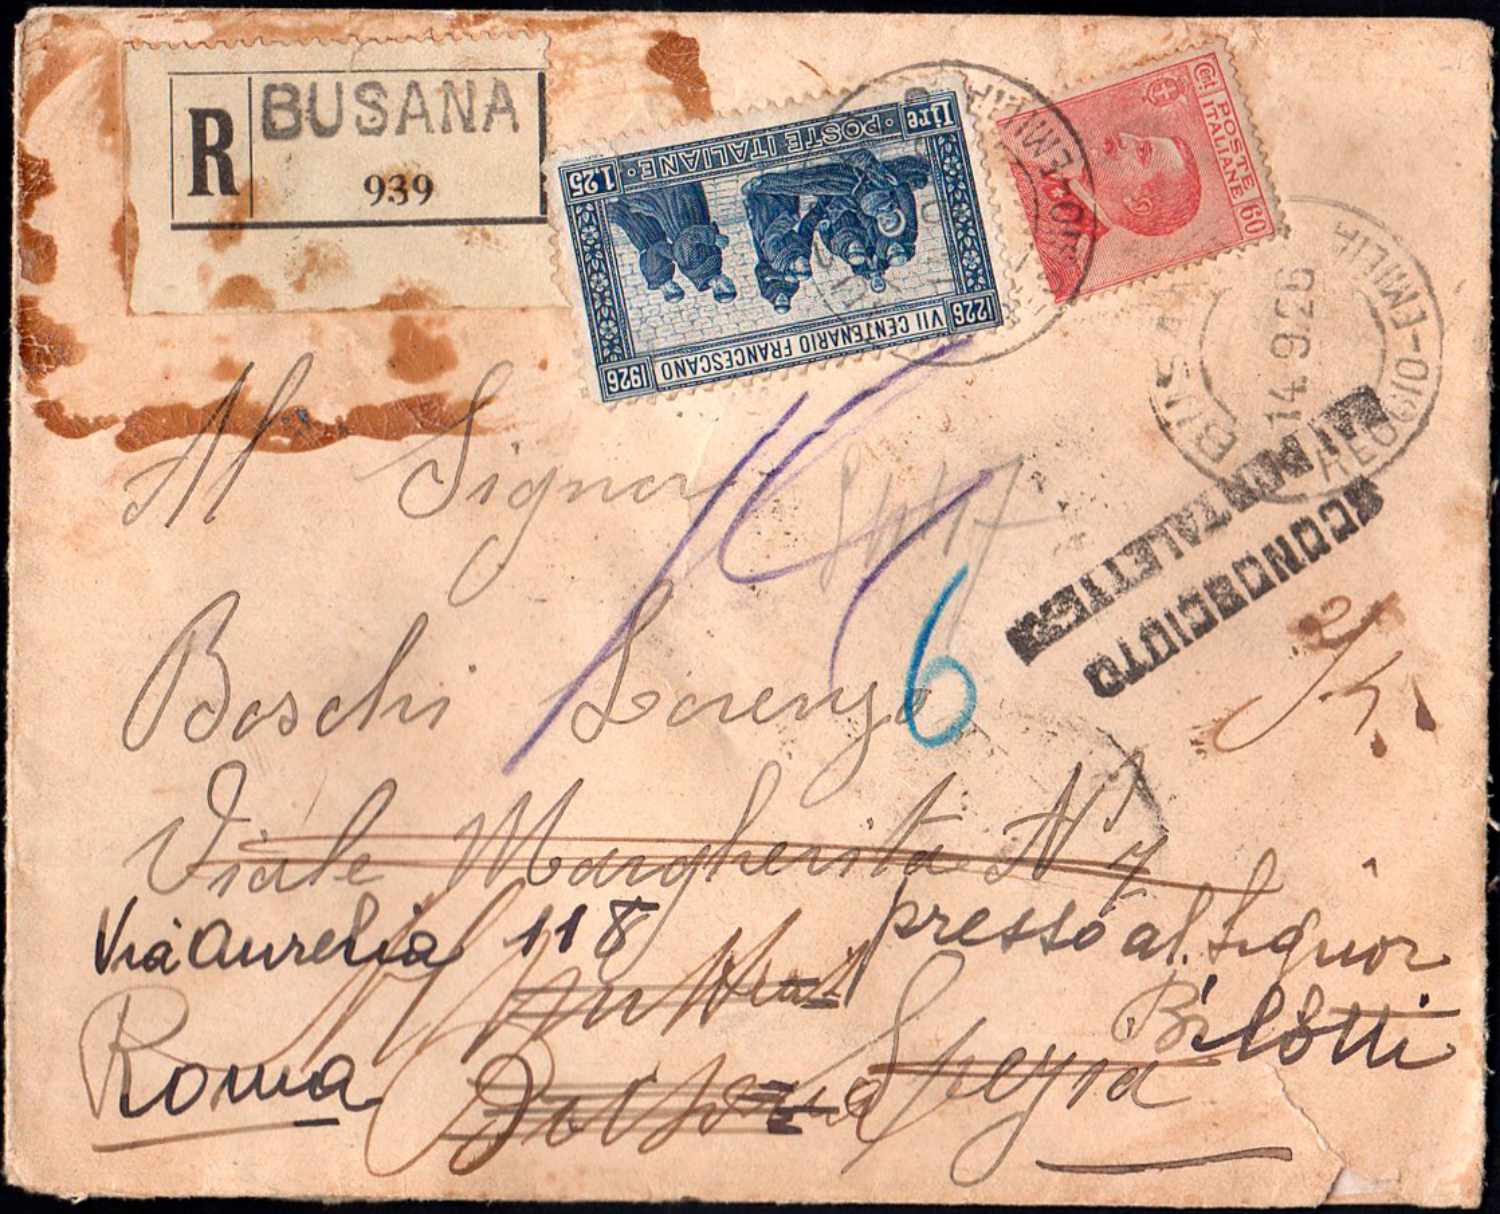 R BUSANA
939
Lire 1.25
POSTE ITALIANE
VII CENTENARIO FRANCESCANO
1226 1926
Cent. 60
POSTE
ITALIANE
BUSANA
REGGIO-EMILIA
14.9.26
SCONOSCIUTO
AI PORTALETTERE
Al Signor
6
Boschi Lorenzo
Viale Margherita N 7
Via Aurelia 118 presso al Signor
Bilotti
Roma Spezia